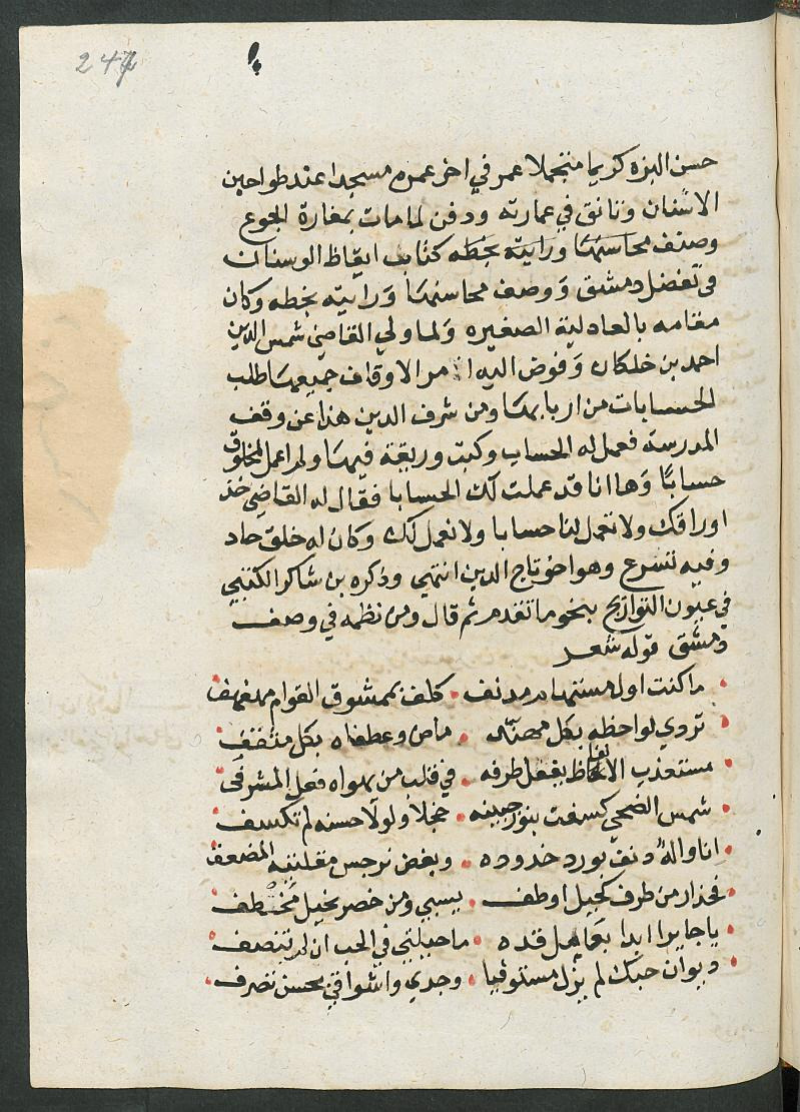 247
حسن البزه كريما متجملا عمر في اخر عمره مسجدا عند طواحين
الاشنان وتانق في عمارته ودفن لما مات بمغارة الجوع
وصنف محاسنها ورايته بخطه كتاب ايقاظ الوسنان
في تفضل دمشق ووصف محاسنها ورايته بخطه وكان
مقامه بالعادلية الصغيره ولما ولي القاضي شمس الدين
احمد بن خلكان وفوض اليه امر الاوقاف جميعها طلب
الحسابات من اربابها ومن شرف الدين هذا عن وقف
المدرسة فعمل له الحساب وكبت وريقة فيها ولم اعمل لمخلوق
حسابا وها انا قد عملت لك الحسابا فقال له القاضي خذ
اوراقك ولا تعمل لنا حسابا ولا نعمل لك وكان له خلق حاد
وفيه تسرع وهو اخو تاج الدين انتهي وذكره بن شاكر الكتبي
في عيون التواريخ بنحو ما تقدم ثم قال ومن نظمه في وصف
دمشق قوله شعر
ما كنت اول مستهام مدنف كلف بممشوق القوام مهفهف
تروي لواحظه بكل مهند ماض وعطفاه بكل مثقف
مستعذب الالفاظ يفعل طرفه في قلب من يهواه فعل المشرفي
شمس الضحي كسفت بنور جبينه خجلا ولولا حسنه لم تكسف
انا واله دنف بورد خدوده وبغض نرجس مقلتيه المضعف
فحذار من طرف كحيل اوطف يسبي ومن خصر نحيل مخطف
يا جايرا ابدا بعامل قده ما حيلتي في الحب ان لم تنصف
ديوان حبك لم يزل مستوفيا وجدي واشواقي بحسن تصرف